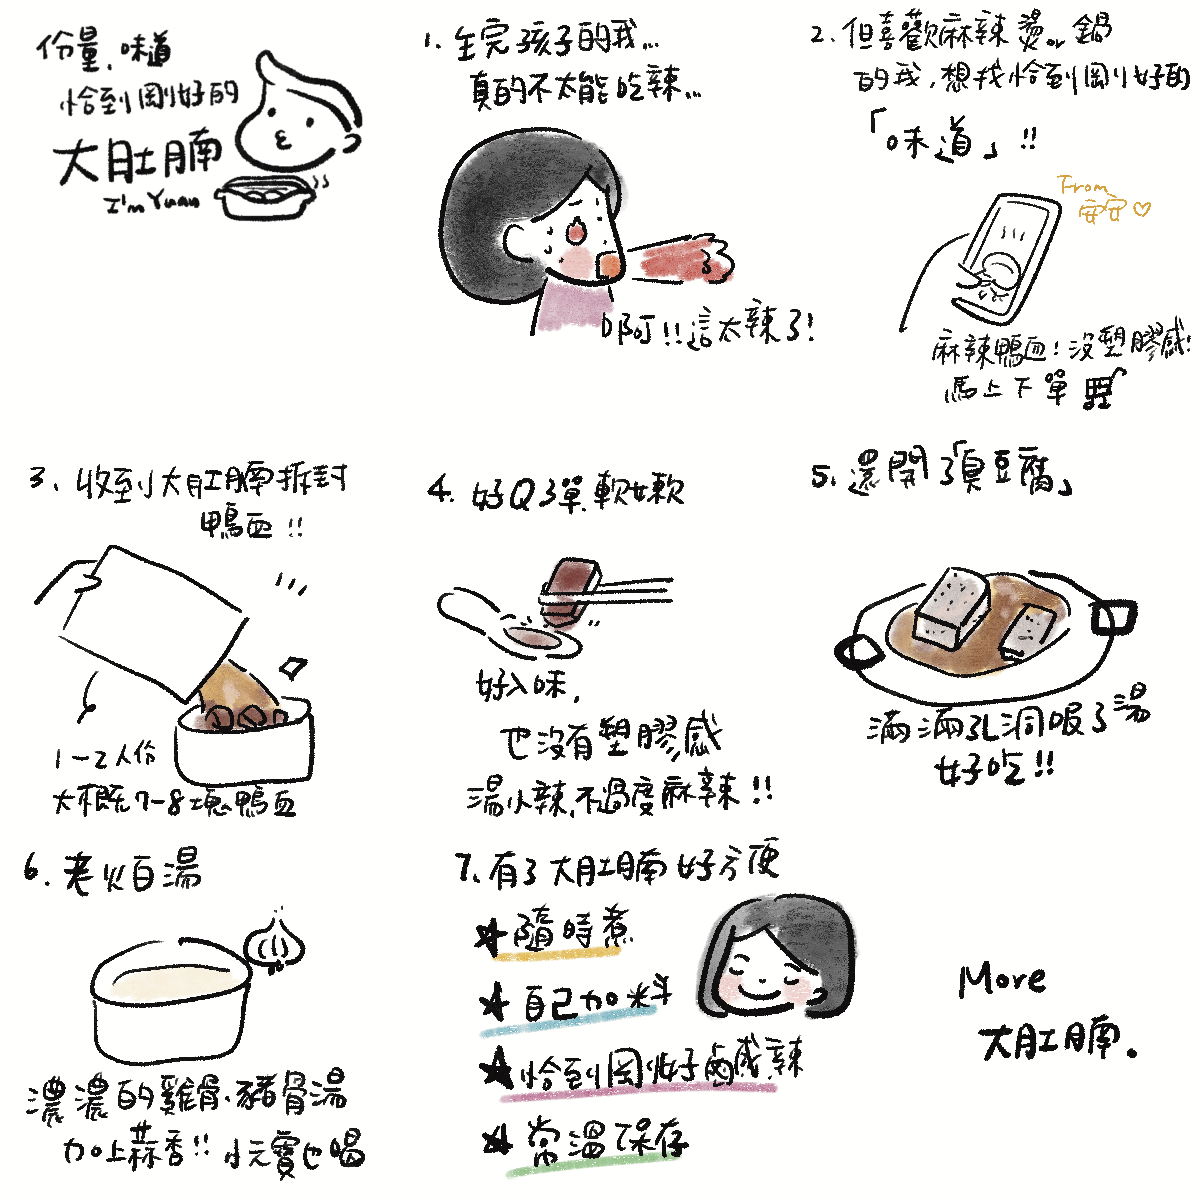 份量、味道
恰到剛好的
大肚腩
I'm Yuan
1. 生完孩子的我...
真的不太能吃辣...
啊!!這太辣了!
2. 但喜歡麻辣燙or鍋
的我,想找恰到剛好的
「味道」!!
From
安安♡
麻辣鴨血!沒塑膠感!
馬上下單
3. 收到大肚腩拆封
鴨血!!
1-2人份
大概7-8塊鴨血
4. 好Q彈.軟嫩
好入味,
也沒有塑膠感
湯小辣,不過度麻辣!!
5. 還開了「臭豆腐」
滿滿孔洞吸了湯
好吃!!
6. 老火白湯
濃濃的雞骨、豬骨湯
加上蒜香!!小元寶也喝
7. 有了大肚腩好方便
★隨時煮
★自己加料
★恰到剛好鹹辣
★常溫保存
More
大肚腩.